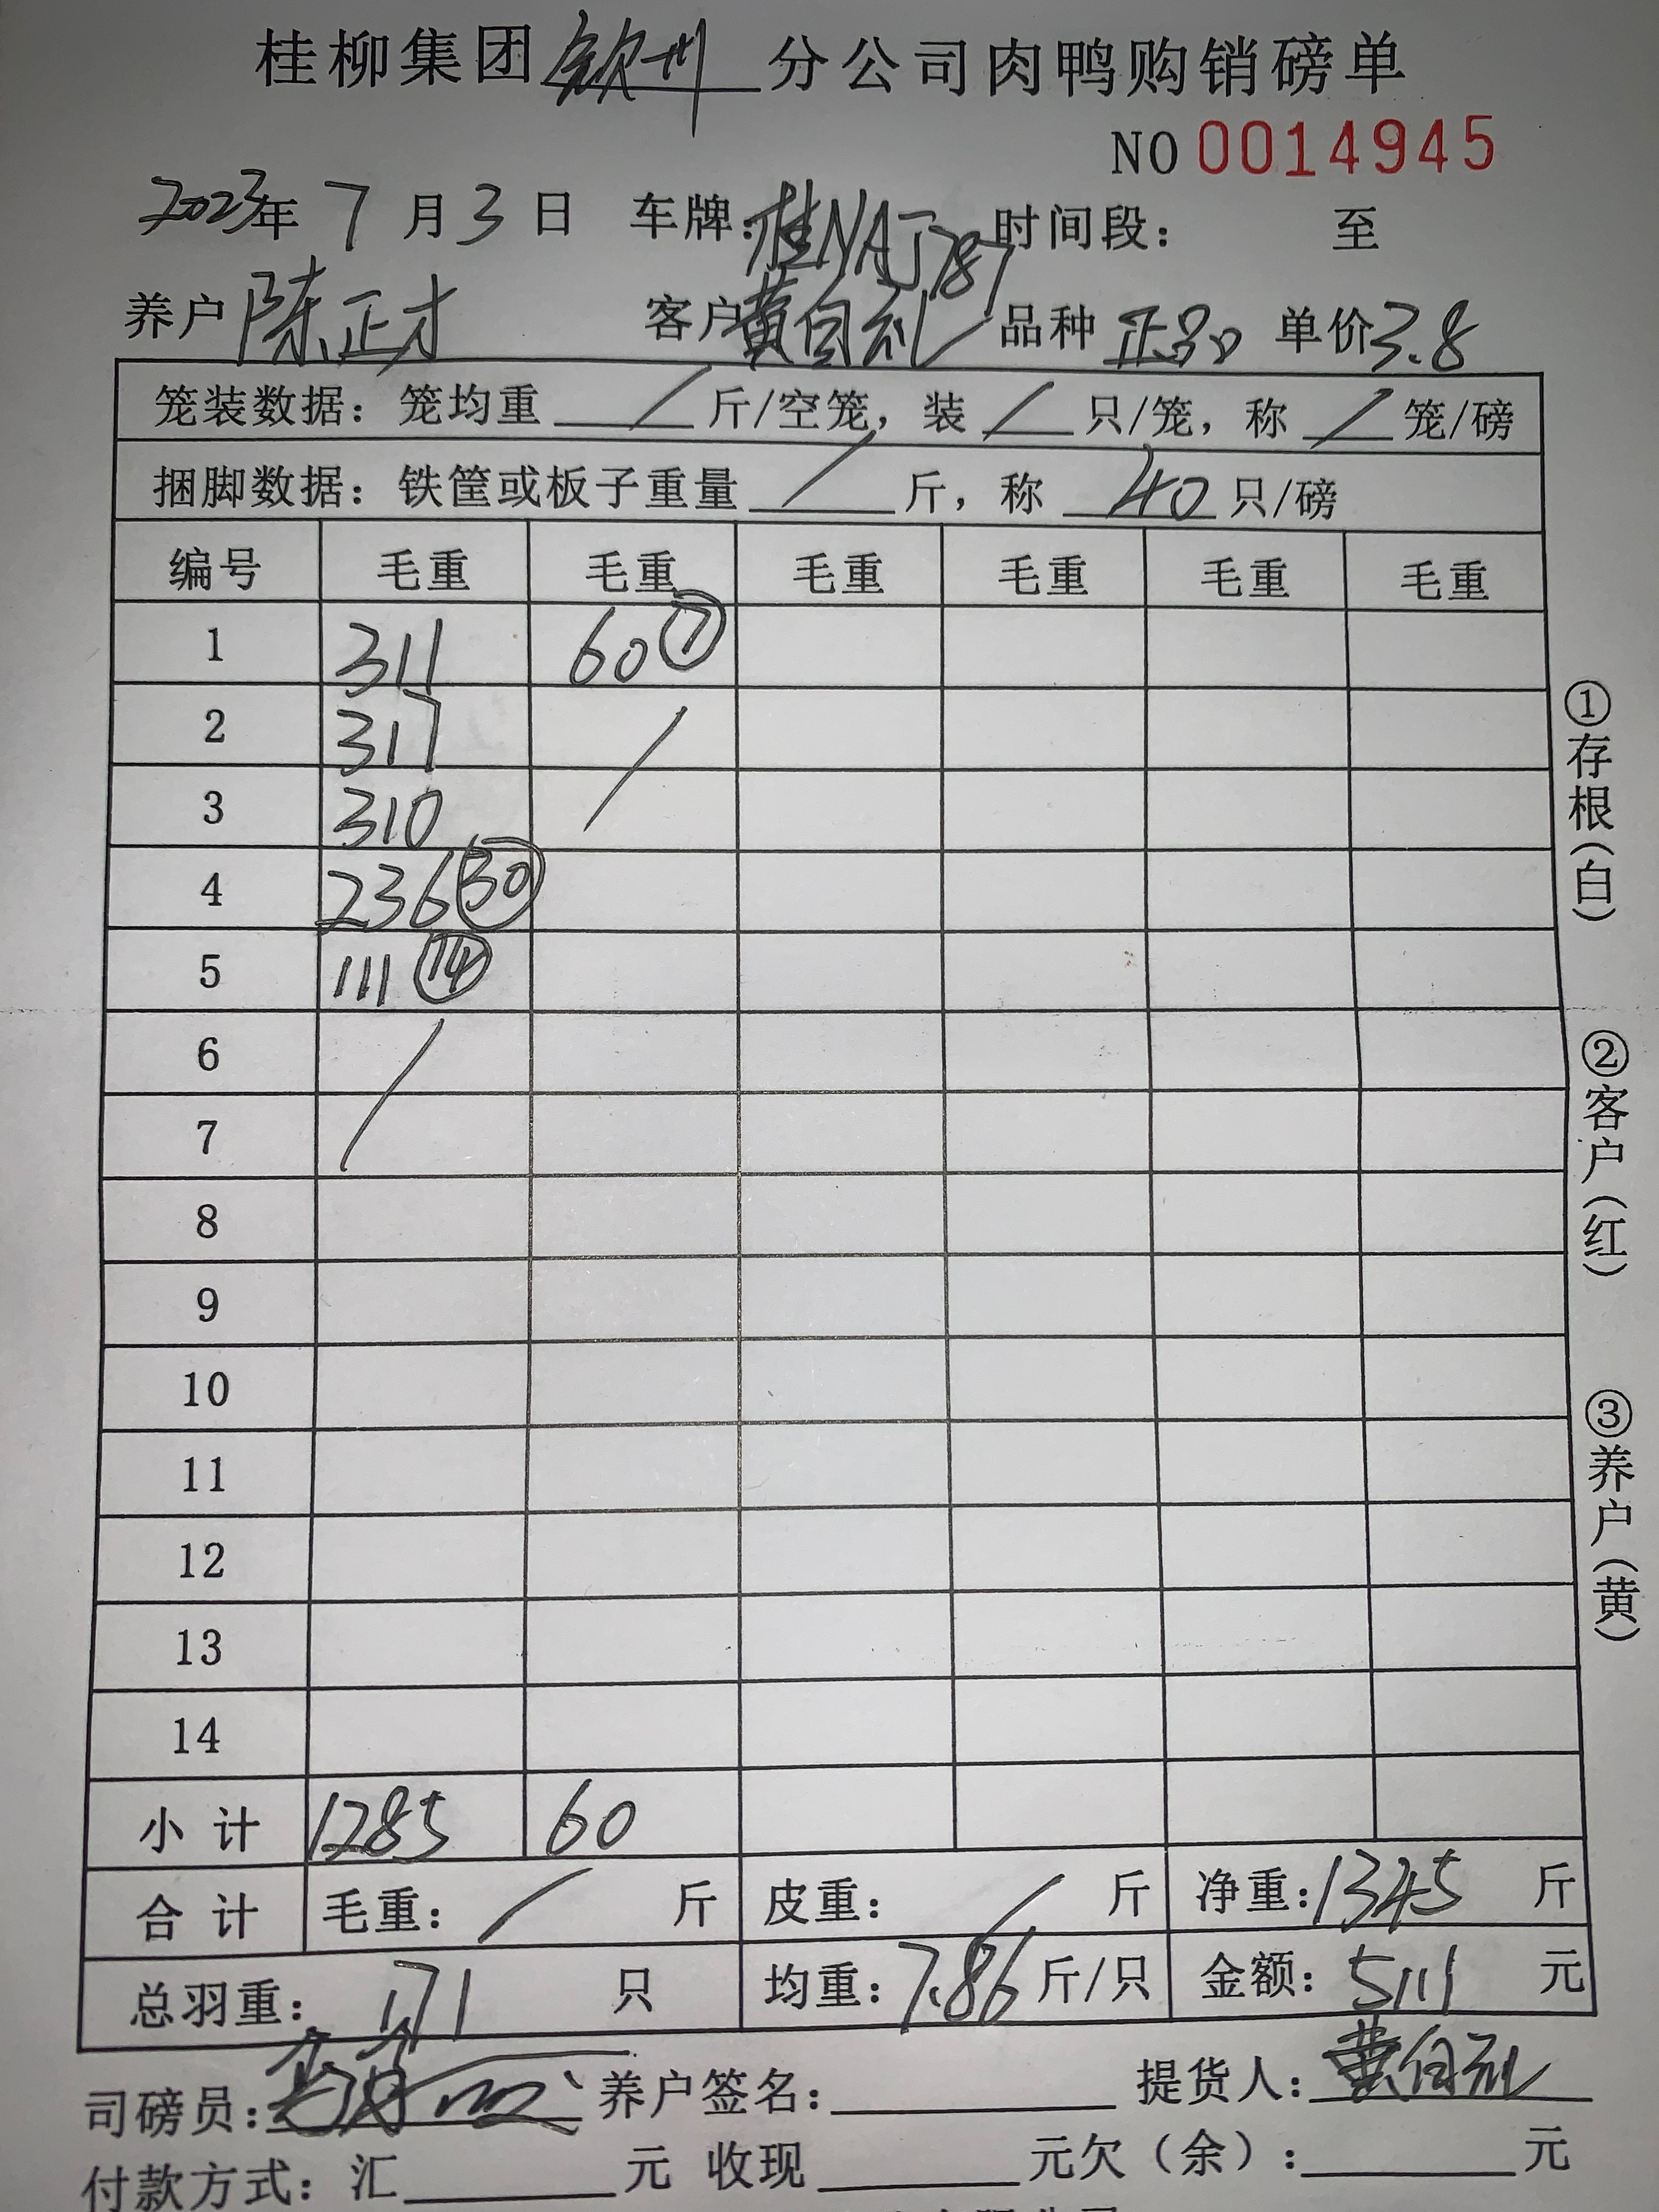 桂柳集团钦州分公司肉鸭购销磅单
NO 0014945
2023年 7 月 3 日 车牌:桂NAJ787 时间段: 至
养户 陈正才 客户 黄自礼 品种 正品 单价 3.8
笼装数据: 笼均重 / 斤/空笼, 装 / 只/笼, 称 / 笼/磅
捆脚数据: 铁筐或板子重量 / 斤, 称 40 只/磅
编号 毛重 毛重 毛重 毛重 毛重 毛重
1 311 60 ⑦
2 317 /
3 310
4 236 ㉚
5 111 ⑭
6 /
7
8
9
10
11
12
13
14
小计 1285 60
合计 毛重: / 斤 皮重: / 斤 净重: 1345 斤
总羽重: 171 只 均重: 7.86 斤/只 金额: 5111 元
司磅员: 养户签名: 提货人: 黄自礼
付款方式: 汇 元 收现 元欠(余): 元
①存根(白)
②客户(红)
③养户(黄)